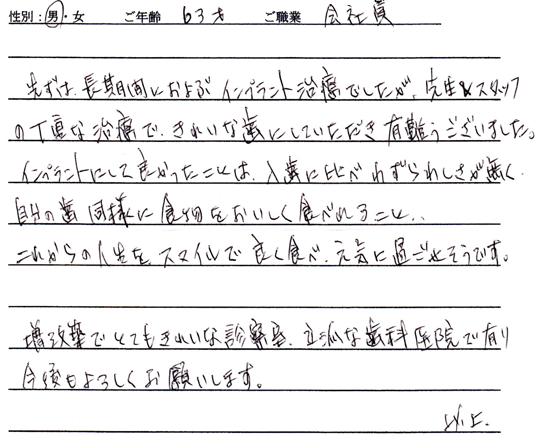 性別：男・女 ご年齢 63才 ご職業 会社員
先ずは、長期間におよぶインプラント治療でしたが、先生&スタッフ
の丁重な治療で、きれいな歯にしていただき有難うございました。
インプラントにして良かったことは、入歯に比べわずらわしさが無く、
自分の歯同様に食物をおいしく食べれること、、
これからの人生を、スマイルで良く食べ、元気に過ごせそうです。
増改築でとてもきれいな診察室、立派な歯科医院で有り
今後もよろしくお願いします。
以上.